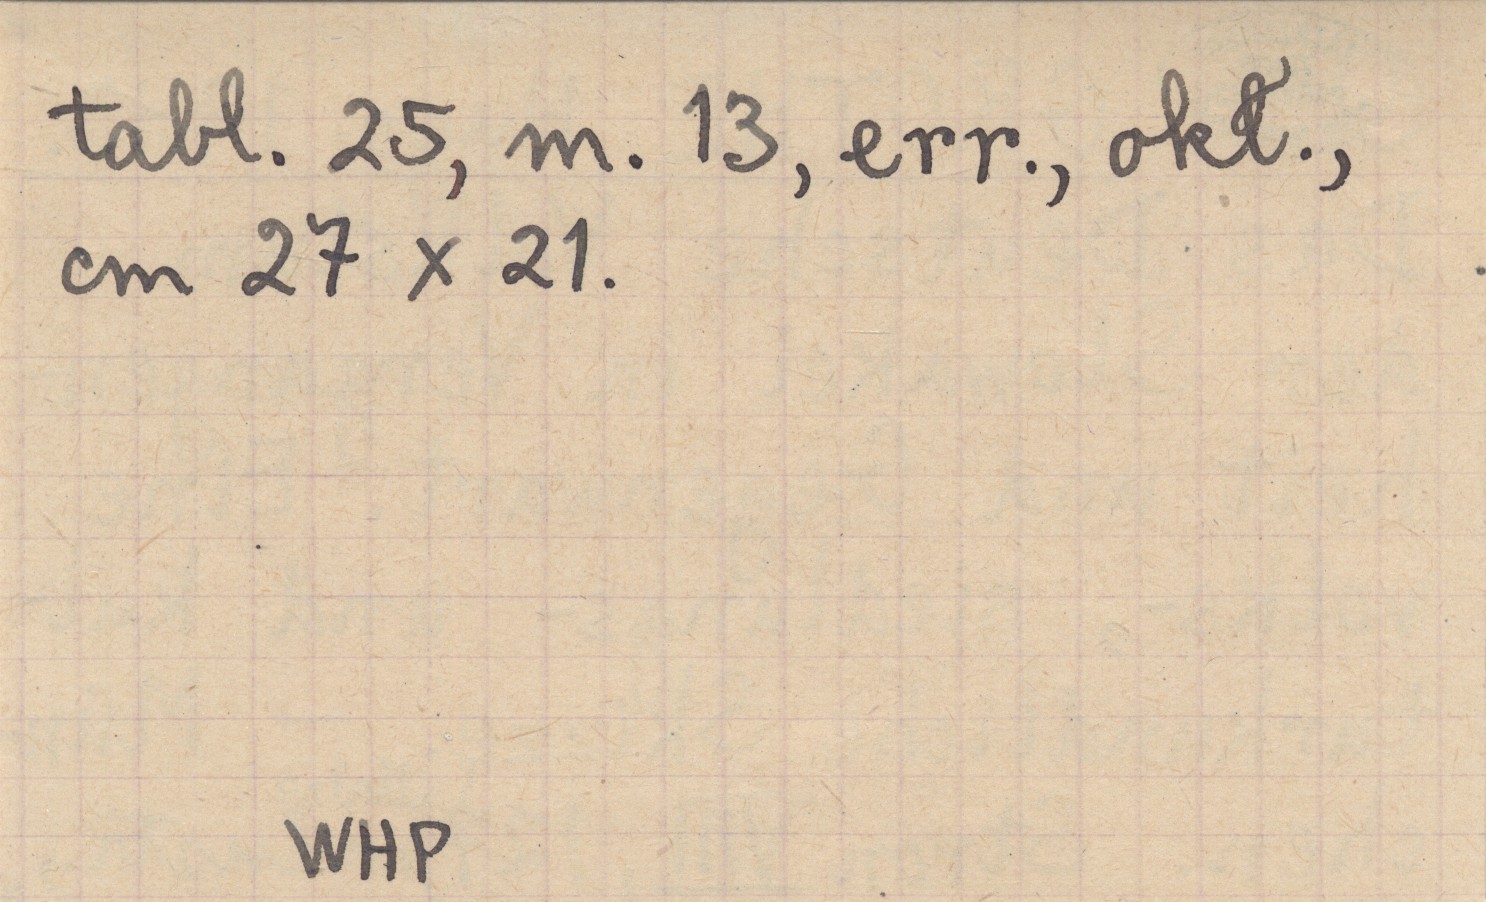 tabl. 25, m. 13, err., okł.,
cm 27 x 21.
WHP